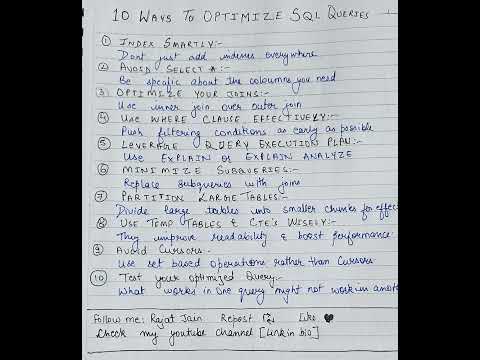 10 WAYS TO OPTIMIZE SQL QUERIES
① INDEX SMARTLY:-
Dont just add indexes everywhere
② AVOID SELECT *:-
Be specific about the coloumns you need
③ OPTIMIZE YOUR JOINS:-
Use inner join over outer join
④ Use WHERE CLAUSE EFFECTIVELY:-
Push filtering conditions as early as possible
⑤ LEVERAGE QUERY EXECUTION PLAN:-
Use EXPLAIN or EXPLAIN ANALYZE
⑥ MINIMIZE SUBQUERIES:-
Replace subqueries with joins
⑦ PARTITION LARGE TABLES:-
Divide large tables into smaller chunks for effec
⑧ USE TEMP TABLES & CTE's WISELY:-
They improve readability & boost performance.
⑨ AVOID CURSORS:-
Use set based operations rather than Cursors
⑩ Test your optimized Query:-
What works in one query might not work in anoth
Follow me: Rajat Jain Repost Like
Check my youtube channel [Link in bio]